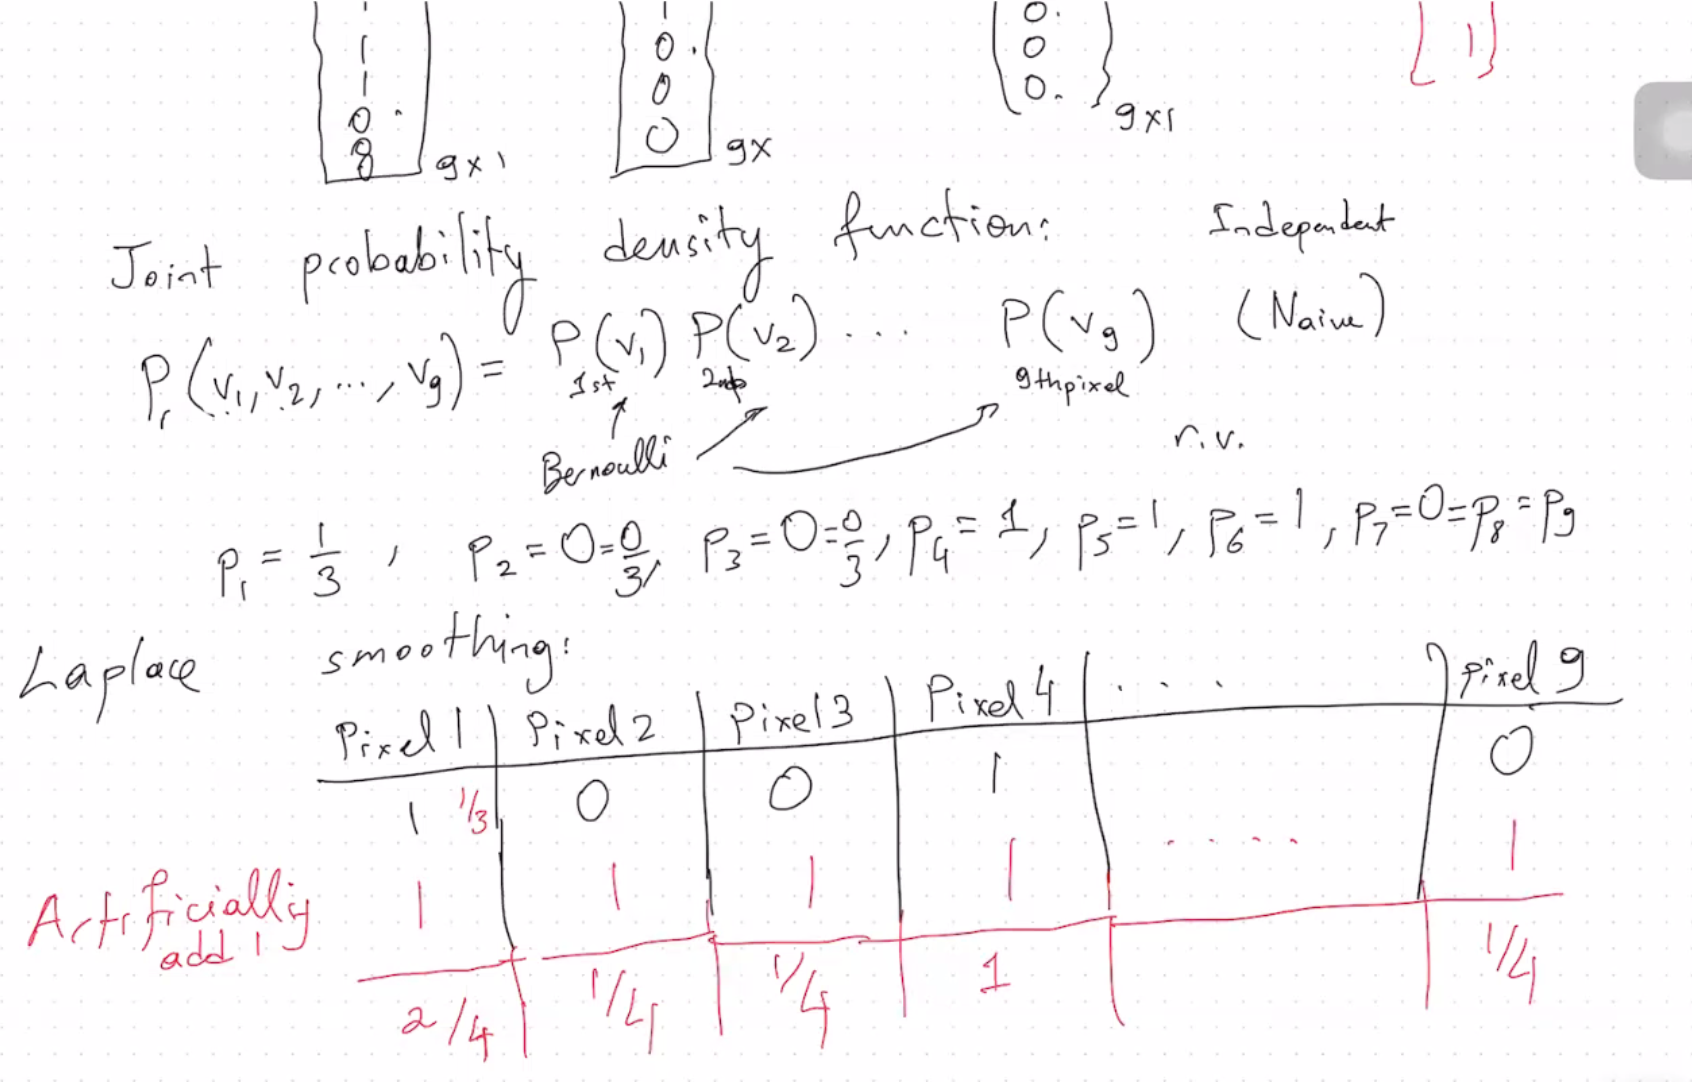 1 1 0. 0.
1 0 0 1
0. 0 0.
8 9x1 0 9x 9x1
Joint probability density function: Independent
Pr(v1, v2, ..., v9) = P(v1) P(v2) ... P(v9) (Naive)
1st 2nd 9thpixel
Bernoulli r.v.
p1 = 1/3, p2 = 0 = 0/3, p3 = 0 = 0/3, p4 = 1, p5 = 1, p6 = 1, p7 = 0 = p8 = p9
Laplace smoothing:
Pixel 1 Pixel 2 Pixel 3 Pixel 4 . . . Pixel 9
1 1/3 0 0 1 0
Artificially add 1 1 1 1 1 ..... 1
2/4 1/4 1/4 1 1/4